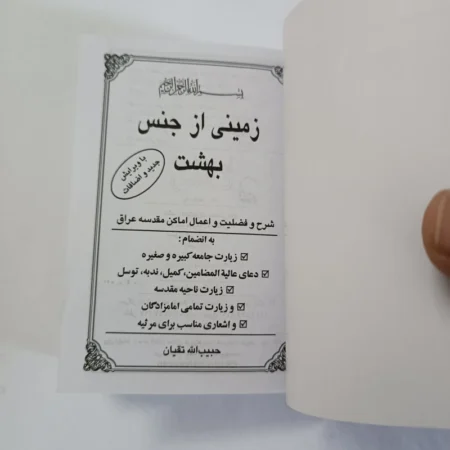 بسم الله الرحمن الرحیم
زمینی از جنس
بهشت
با ویرایش
جدید و اضافات
شرح و فضلیت و اعمال اماکن مقدسه عراق
به انضمام :
☑ زیارت جامعه کبیره و صغیره
☑ دعای عالیة المضامین، کمیل، ندبه، توسل
☑ زیارت ناحیه مقدسه
☑ و زیارت تمامی امامزادگان
☑ و اشعاری مناسب برای مرثیه
حبیب‌الله تقیان